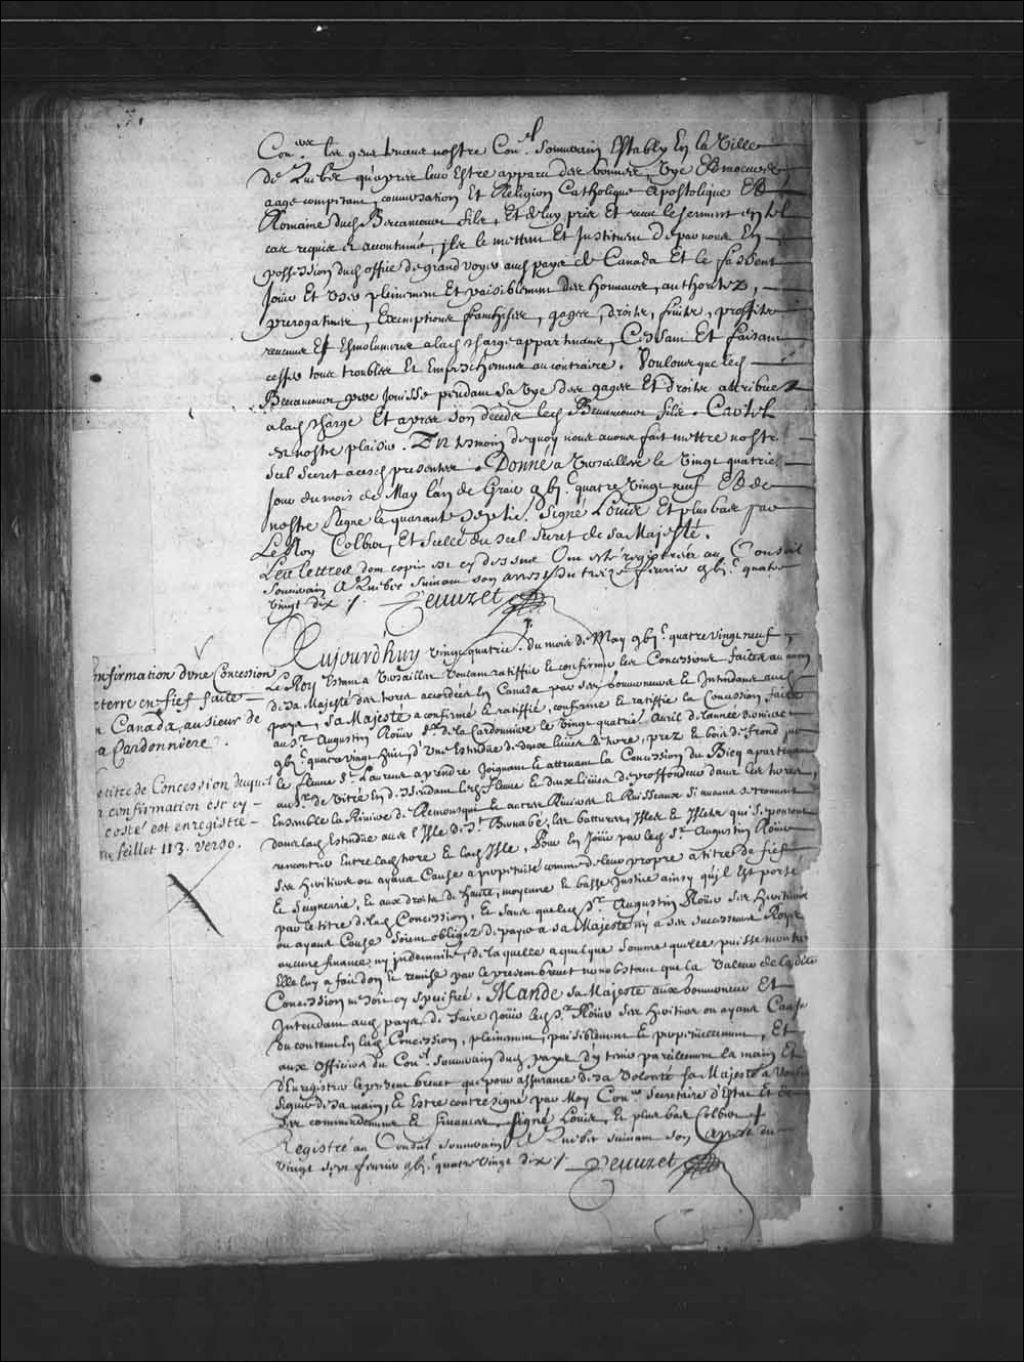 Con.ers les gens tenans nostre Con.el Souuerain Estably En la Ville
de Quebec qu'apres leur Estre apparu des bonnes, Vye Et moeurs
aage competant, conuersation Et Religion Catholique Apostolique Et
Romaine dud Becancour fils, Et de luy pris Et receu le serment en tel
cas requis et accoutumé, ils le mettent Et Instituent de par nous En
possession dud office de grand Voyer aud pays de Canada Et le fassent
Jouir Et Vser pleinement Et paisiblement des honneurs, authoritez,
prerogatiues, Exemptions franchises, gages, droits, fruits, proffits
reuenus Et Esmolumens a lad charge appartenans, Cessant Et faisant
cesser tous troubles Et Empeschemens au contraire. Voulons que led
Becancour pere Jouisse pendant sa Vye des gages Et droits attribuez
a lad charge Et apres son decedz led Becancour fils. Car tel
est nostre plaisir. En tesmoin de quoy nous auons fait mettre nostre
Scel Secret a cesd presentes. Donné a Versailles le Vingt quatrie.
Jour du mois de May l'an de Grace gbj.c quatre Vingt neuf Et de
nostre Regne le quarante septie. Signé Louis Et plus bas par
Le Roy Colbert, Et Scellé du scel secret de sa Majesté.
Les lettres dont copie est cy dessus Ont esté registrées au Conseil
Souuerain A Quebec suiuant son arrest du treize feurier gbj.c quatre
Vingt dix /. Peuuret
Aujourd'huy Vingt quatrie. du mois de May gbj.c quatre vingt neuf
Le Roy Estant a Versailles Voulant ratiffier et confirmer les Concessions faites au nom
de sa Majesté des terres accordées En Canada par ses Gouuerneurs et Intendans aud
pays, Sa Majesté a confirmé et ratiffié, confirme et ratiffie la Concession faite
au Sr. Augustin Roüer Sr. de la Cardonniere le Vingt quatrie. Auril de l'année derniere
gbj.c quatre vingt huit, d'Vne Estendue de deux lieues de terre, prez et bois de frond sur
le fleuue St. Laurens a prendre Joignant et attenant la Concession du Bicq apartenant
au Sr. de Vitré En descendant led fleuue Et deux lieues de proffondeur dans les terres,
Ensemble la Riuiere de Rimousqui et autres Riuieres et Ruisseaux Si aucuns se trouuent
dans lad Estendue auec l'Isle de St. Barnabé, les battures, Isles et Islets qui se pouront
rencontrer Entre lad terre et lad Isle, Pour En Jouir par led Sr. Augustin Roüer
ses heritiers ou ayans Cause a perpetuité comme de leur propre a titre de fief
et Seigneurie, et aux droits de haute, moyenne et basse Justice ainsy qu'jl Est porté
par le titre de lad Concession, et sans que led Sr. Augustin Roüer ses heritiers
ou ayans Cause soient obligez de payer a sa Majesté ny a ses successeurs Roys
aucune finance ny jndemnité, de laquelle a quelque somme qu'elle puisse monter
Elle luy a fait don et remise par le present breuet nonobstant que la Valeur de lad
Concession ne soit cy speciffiée. Mande sa Majesté aux Gouuerneur Et
Intendant aud pays de faire Jouir led Sr. Roüer ses heritiers ou ayans Cause
du contenu En lad Concession, pleinement, paisiblement et perpetuellement, Et
aux Officiers du Con.el Souuerain dud pays d'y tenir pareillement la main Et
d'Enregistrer le present breuet que pour assurance de sa Volonté sa Majesté a Voulu
signer de sa main, et Estre contresigné par Moy Con.er Secretaire d'Estat Et de
ses commandemens et finances, Signé Louis, et plus bas Colbert
Registré au Conseil Souuerain A Quebec suiuant son Arrest du
Vingt sept feurier gbj.c quatre Vingt dix /. Peuuret
nfirmation d'vne Concession
terre en fief faite
n Canada, au sieur de
a Cardonniere.
titre de Concession duquel
confirmation est cy
costé est enregistré
feillet 113. verso.